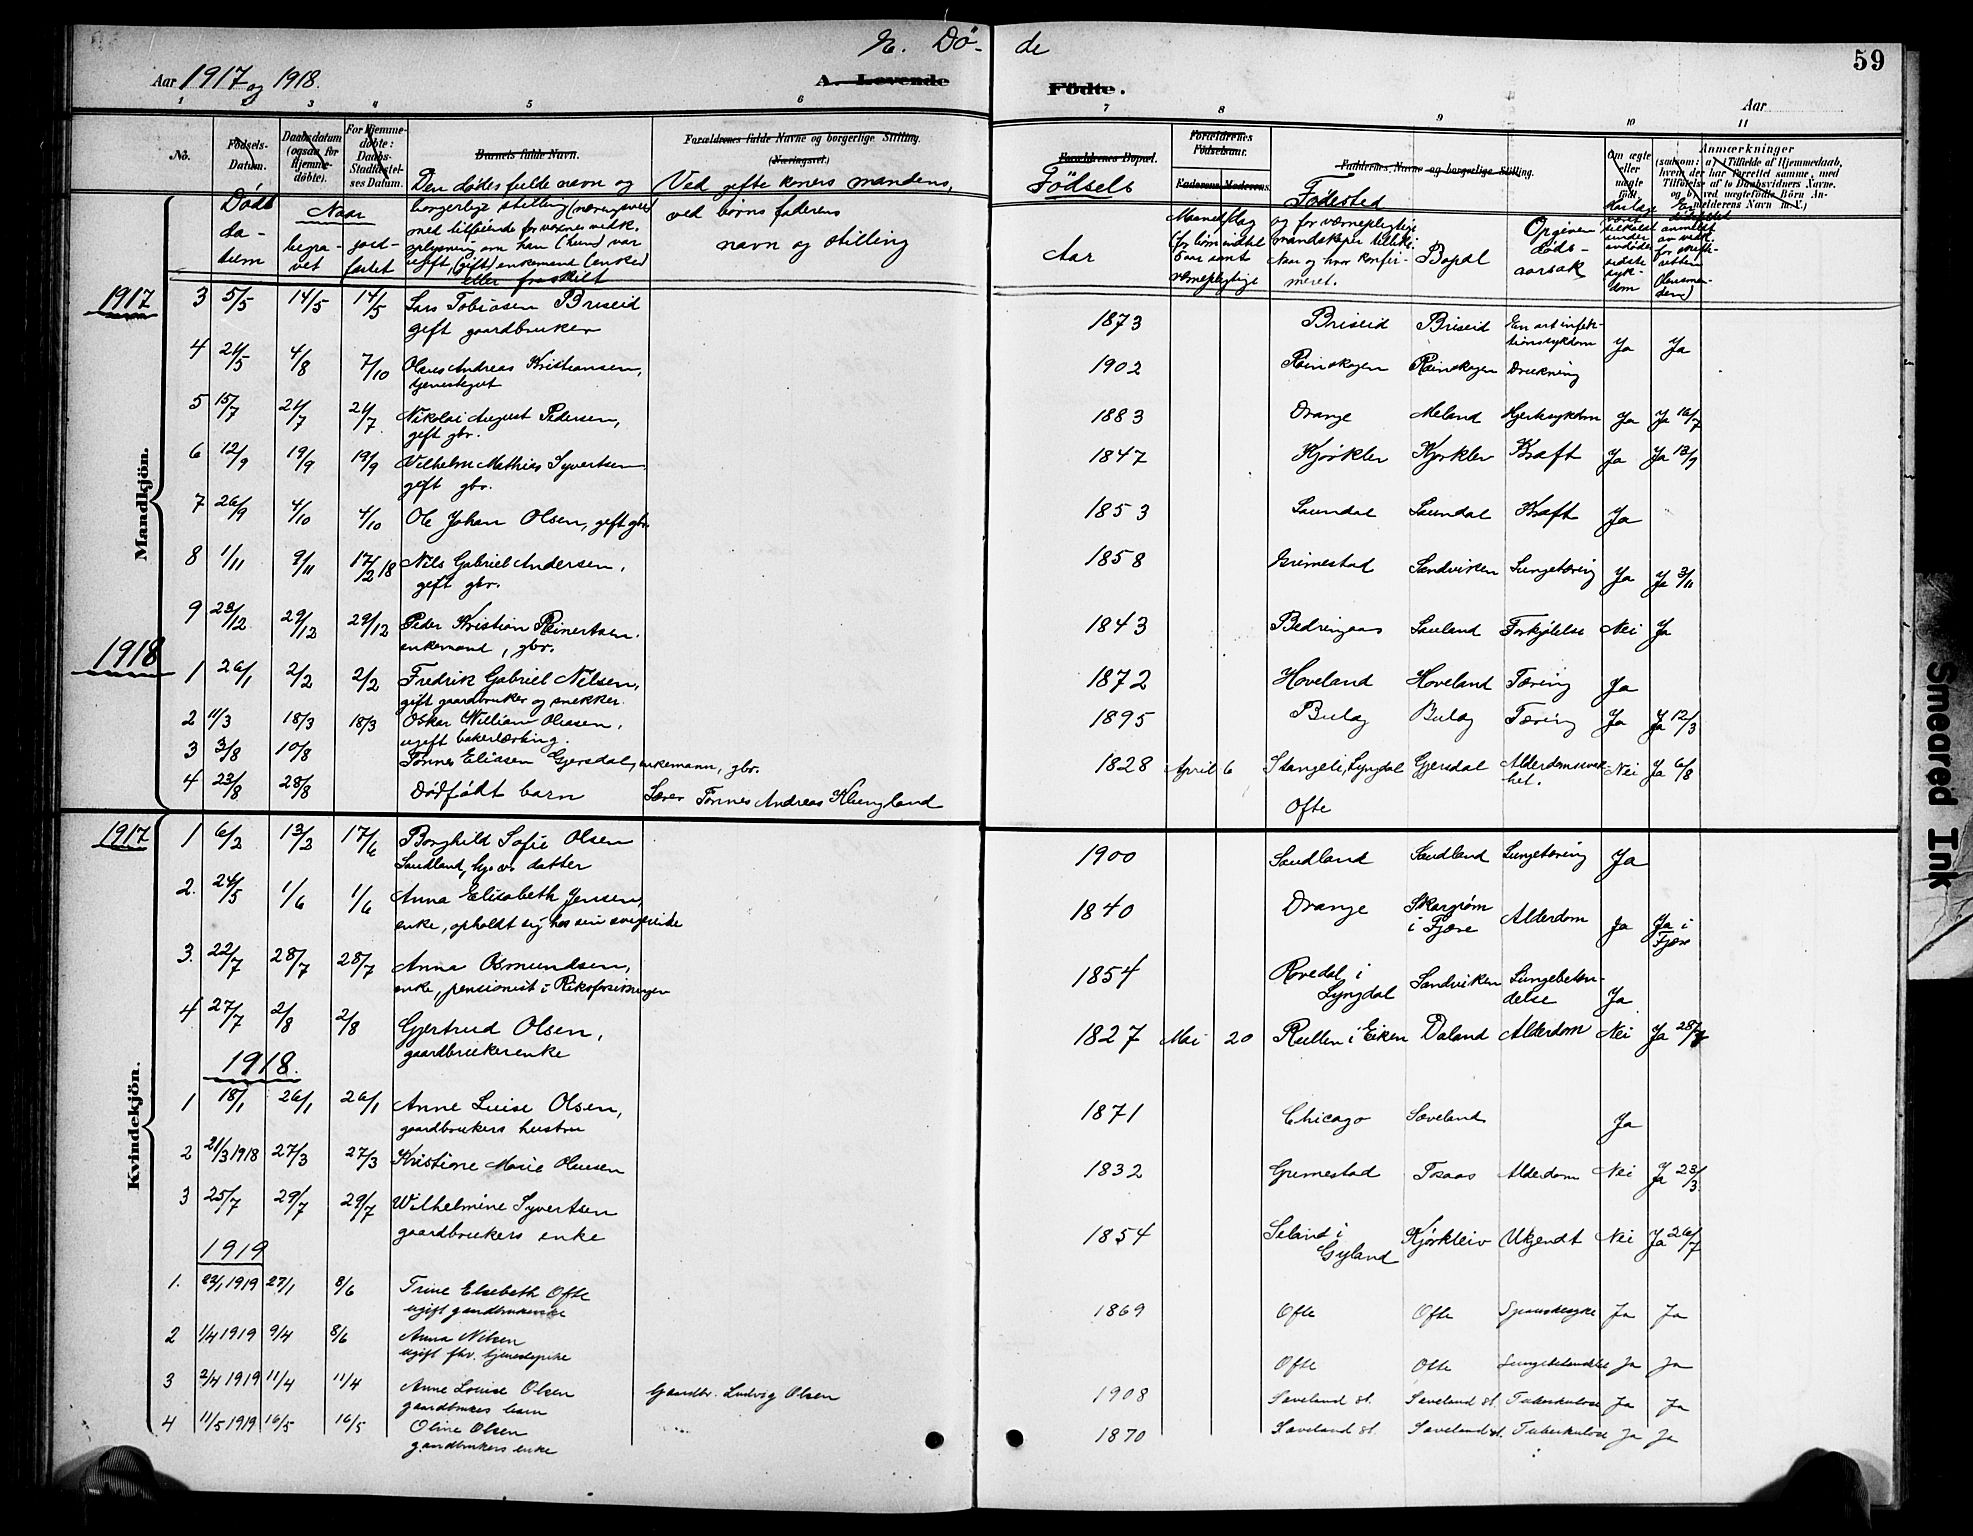 N. Dö- de
59
Aar 1917 og 1918.
A. Levende Födte.
Aar
1 2 3 4 5 6 7 8 9 10 11
No. Födsels-Datum. Daabsdatum (ogsaa for Hjemme-döbte). For Hjemme-döbte: Daabs-Stadfæstel-ses Datum. Barnets fulde Navn. Forældrenes fulde Navne og borgerlige Stilling. (Næringsvei.) Forældrenes Bopæl. Forældrenes Födselsaar. Faderens Moderens Faddernes Navne og borgerlige Stilling. Om ægte eller uægte födt. Anmærkninger (saasom: a, i Tilfælde af Hjemmedaab, hvem der har forrettet samme, med Tilföielse af to Daabsvidners Navne, og b, ved uægtefödte Börn An-melderens Navn m. V.)
Døds da- tum
Naar begra- vet jord- fæstet
Den dødes fulde navn og
borgerlige stilling (næringsvei)
med tilføiende for voxnes vedk.
oplysning om han (hun) var
ugift, (gift) enkemand (enke)
eller fraskilt
Ved gifte koners mandens,
ved børns faderens
navn og stilling
Fødsels
Aar
Maaned Dag
(for børn indtil
5 aar samt
vernepligtige
Fødested
og for værnepligtige
mandskaper tillike
naar og hvor konfir-
meret.
Bopæl
Opgiven
døds-
aarsak
Mandkjön.
1917
3 5/5 14/5 14/5 Lars Tobiasen Briseid 1873 Briseid Briseid En art infek-
gift gaardbruker tionssykdom Ja Ja
4 21/5 4/8 7/10 Olaus Andreas Kristiansen, 1902 Reinskogen Reinskogen Drukning
tjenestegut
5 15/7 21/7 21/7 Nikolai August Pedersen, 1883 Drange Meland Hjertesykdom Ja Ja 16/7
gift gbr.
6 12/9 19/9 19/9 Vilhelm Mathias Syvertsen 1847 Kjørklev Kjørklev Kræft Ja Ja 13/9
gift gbr.
7 26/9 4/10 4/10 Ole Johan Olsen, gift gbr. 1853 Saundal Saundal Kræft Ja
8 1/11 9/11 17/2 18 Nils Gabriel Andersen, 1858 Grimestad Sandviken Lungetæring Ja Ja 3/11
gift gbr.
9 23/12 29/12 29/12 Peder Kristian Reinertsen. 1843 Bedringaas Sauland Forkjølelse Nei Ja
enkemand, gbr.
1918
1 26/1 2/2 2/2 Fredrik Gabriel Nilsen, 1872 Hoveland Hoveland Tæring Ja
gift gaardbruker og snekker.
2 11/3 18/3 18/3 Oskar William Oliasen, 1895 Bulæg Bulæg Tæring Ja Ja 12/3
ugift bakerlærling.
3 3/8 10/8 Tønnes Eliasen Gjersdal, enkemann, gbr. 1828 April 6 Stangeli, Lyngdal Gjersdal Alderdomssvak-
het. Nei Ja 6/8
4 23/8 28/8 Dødfødt barn Lærer Tønnes Andreas Klungland Ofte
Kvindekjön.
1917
1 6/2 13/2 17/6 Borghild Sofie Olsen 1900 Saudland Saudland Lungetæring Ja
Saudland, hjv. datter
2. 24/5 1/6 1/6 Anna Elisabeth Jensen, 1840 Drange Skargrøm
i Fjære Alderdom Ja Ja i Fjære
enke, opholdt sig hos sin
3. 22/7 28/7 28/7 Anna Osmundsen, 1854 Rovedal i
Lyngdal Sandviken Lungebeten-
delse Ja
enke, pensionist i Riksforsikringen
4 27/7 2/8 2/8 Gjertrud Olsen, 1827 Mai 20 Rullen i Eiken Daland Alderdom Nei Ja 28/7
gaardbrukerenke
1918.
1 18/1 26/1 26/1 Anne Luise Olsen, 1871 Chicago Saveland Ja
gaardbrukers hustru
2 21/3 1918 27/3 27/3 Kristine Marie Olausen 1832 Grimestad Tsaas Alderdom Nei Ja 23/3
3 25/7 29/7 29/7 Wilhelmine Syvertsen 1854 Seland i
Gyland Kjørkleiv Ukjendt Nei Ja 26/7
gaardbrukers enke
1919
1. 22/1 1919 27/1 8/6 Trine Elsebeth Ofte 1869 Ofte Ofte Spanskesyke Ja Ja
ugift
2 1/4 1919 9/4 8/6 Anna Nilsen Ofte Ofte Lungebetændelse Ja Ja
ugift fhv. tjenestepike
3 2/4 1919 11/4 11/4 Anne Louise Olsen Gaardbr. Ludvig Olsen 1908 Saveland st. Saveland st. Tuberkulose Ja Ja
gaardbrukers barn
4 11/5 1919 16/5 16/5 Oline Olsen 1870 Saveland st. Saveland st. Tuberkulose Ja Ja
gaardbrukers enke
Smeared Ink